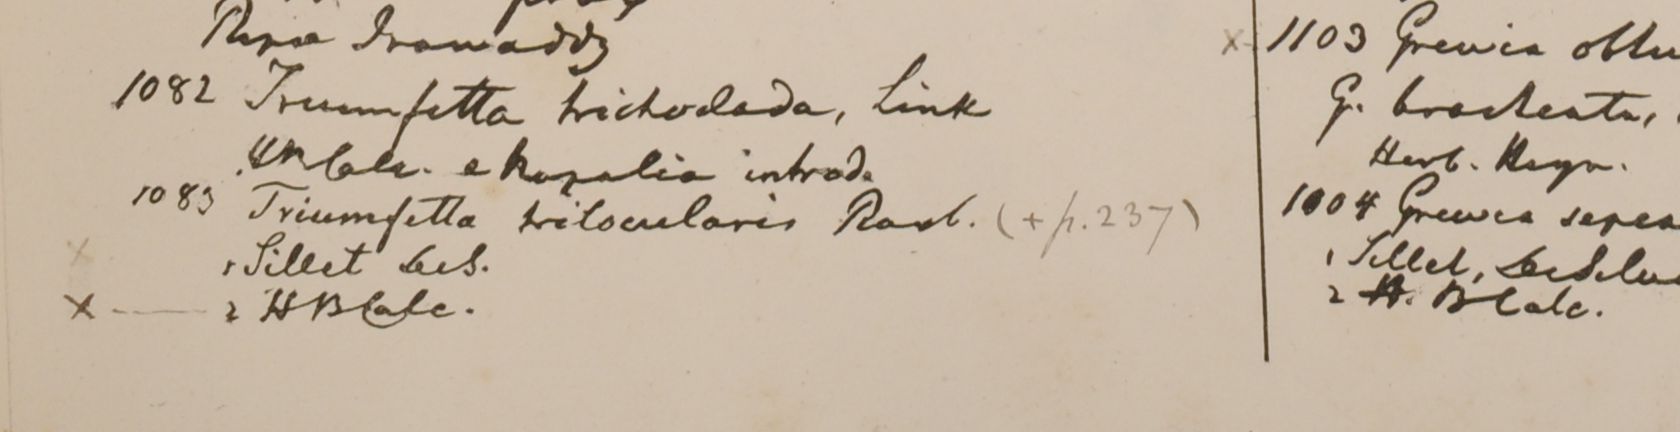 Ripa Irawaddy
1082 Triumfetta trichoclada, Link
HBCalc. e introd.
1083 Triumfetta trilocularis Roxb. (+ p. 237)
1 Sillet
x 2 HBCalc.
x 1103 Grewia
G. bracteata,
Herb. Heyn.
1004 Grewia
1 Sillet,
2 H. B Calc.